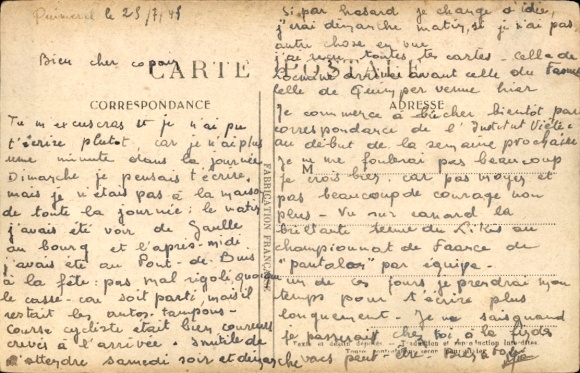 le 25/7/45
Bien cher copain
CARTE POSTALE
CORRESPONDANCE
Tu m'excuseras si je n'ai pu
t'écrire plutot, car je n'ai plus
une minute dans la journée
Dimanche je pensais t'écrire,
mais je n'étais pas à la maison
de toute la journée: le matin
j'avais été voir de Gaulle
au bourg et l'après-midi
j'avais été au Pont-de-Buis
à la fête: pas mal rigolé, quoique
le casse-cou soit parti, mais il
restait les autos-tampons-
course cycliste était bien coureurs
crevés à l'arrivée. Inutile de
m'attendre samedi soir et dimanche
FABRICATION FRANÇAISE
Si par hasard je change d'idée,
j'irai dimanche matin, si je n'ai pas
autre chose en vue
j'ai reçu toutes tes cartes. celle de
Locronan arrivée avant celle du
celle de Quimper venue hier
ADRESSE
Je commence à bûcher bientôt par
correspondance de l'Institut
au début de la semaine prochaine
M
je ne me foulerai pas beaucoup
je crois bien. car pas moyen et
pas beaucoup de courage non
plus - Vu sur canard la
brillante tenue du au
championnat de France de
"pantalon" par équipe -
un de ces jours, je prendrai mon
temps pour t'écrire plus
longuement. Je ne sais quand
je passerai chez toi à la
vais peut-être.
Traduction et reproduction interdites